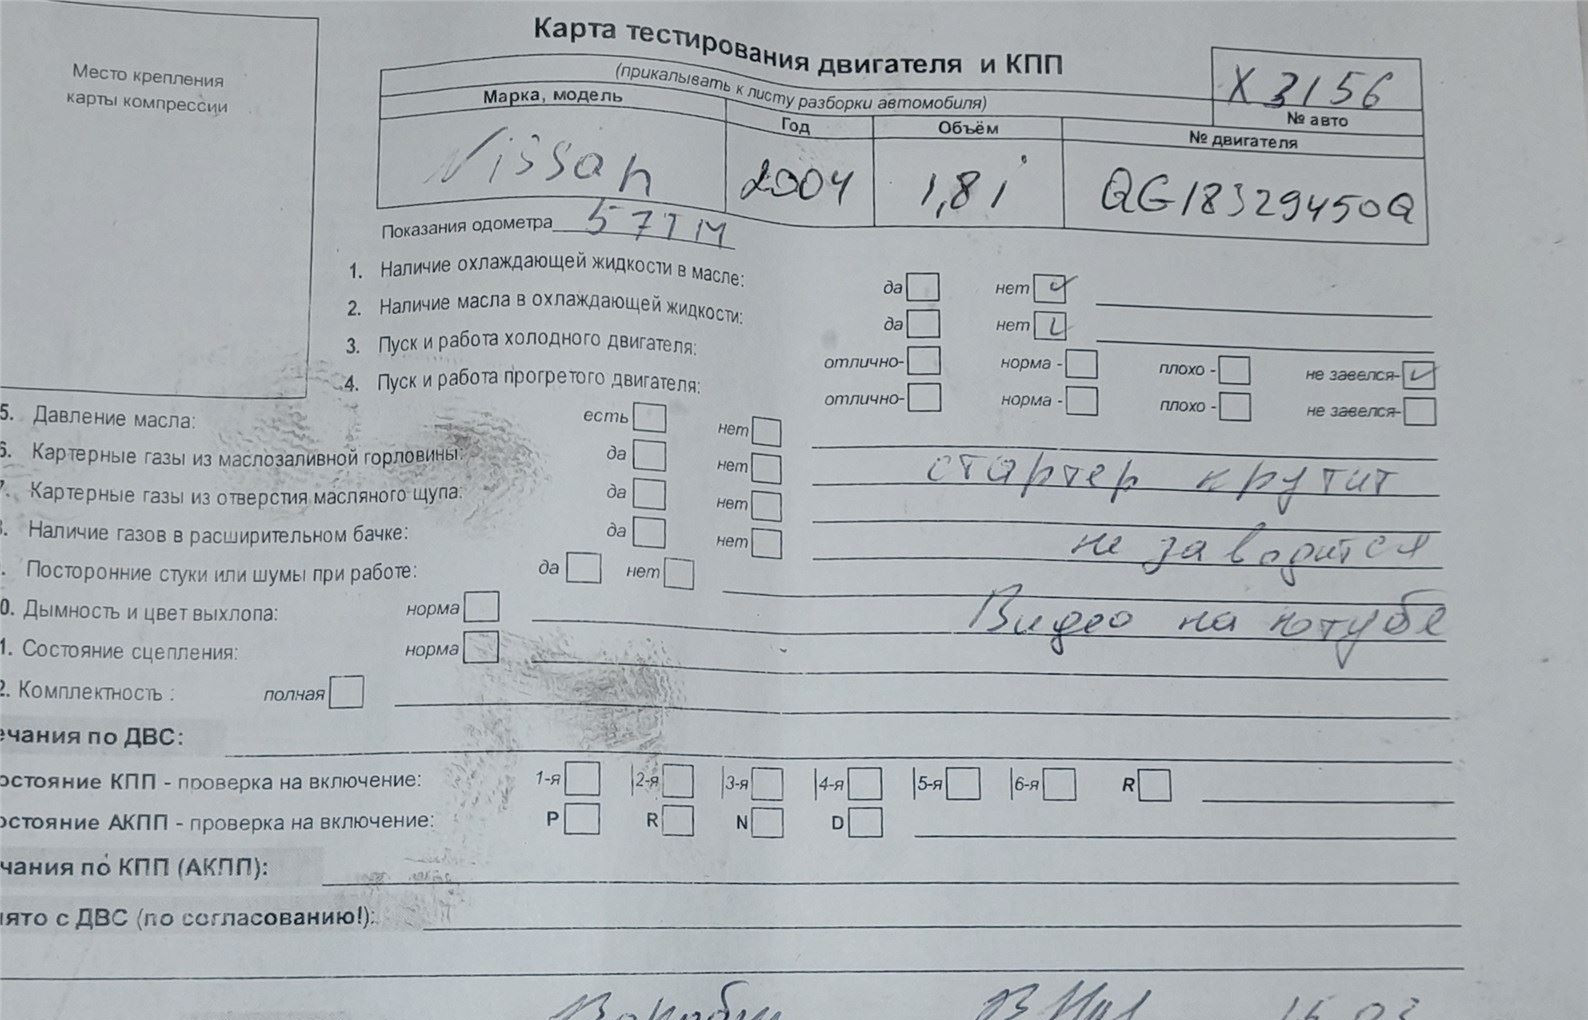 Карта тестирования двигателя и КПП
Место крепления
карты компрессии
(прикалывать к листу разборки автомобиля)
X 3156
№ авто
Марка, модель Год Объём № двигателя
Nissan 2004 1,8 i QG18329450Q
Показания одометра 57 т м
1. Наличие охлаждающей жидкости в масле: да нет
2. Наличие масла в охлаждающей жидкости: да нет
3. Пуск и работа холодного двигателя: отлично- норма - плохо - не завелся-
4. Пуск и работа прогретого двигателя: отлично- норма - плохо - не завелся-
5. Давление масла: есть нет
6. Картерные газы из маслозаливной горловины: да нет стартер крутит
7. Картерные газы из отверстия масляного щупа: да нет
8. Наличие газов в расширительном бачке: да нет не заводится
. Посторонние стуки или шумы при работе: да нет
0. Дымность и цвет выхлопа: норма Видео на ютубе
1. Состояние сцепления: норма
2. Комплектность : полная
ечания по ДВС:
остояние КПП - проверка на включение: 1-я 2-я 3-я 4-я 5-я 6-я R
остояние АКПП - проверка на включение: P R N D
чания по КПП (АКПП):
нято с ДВС (по согласованию!):